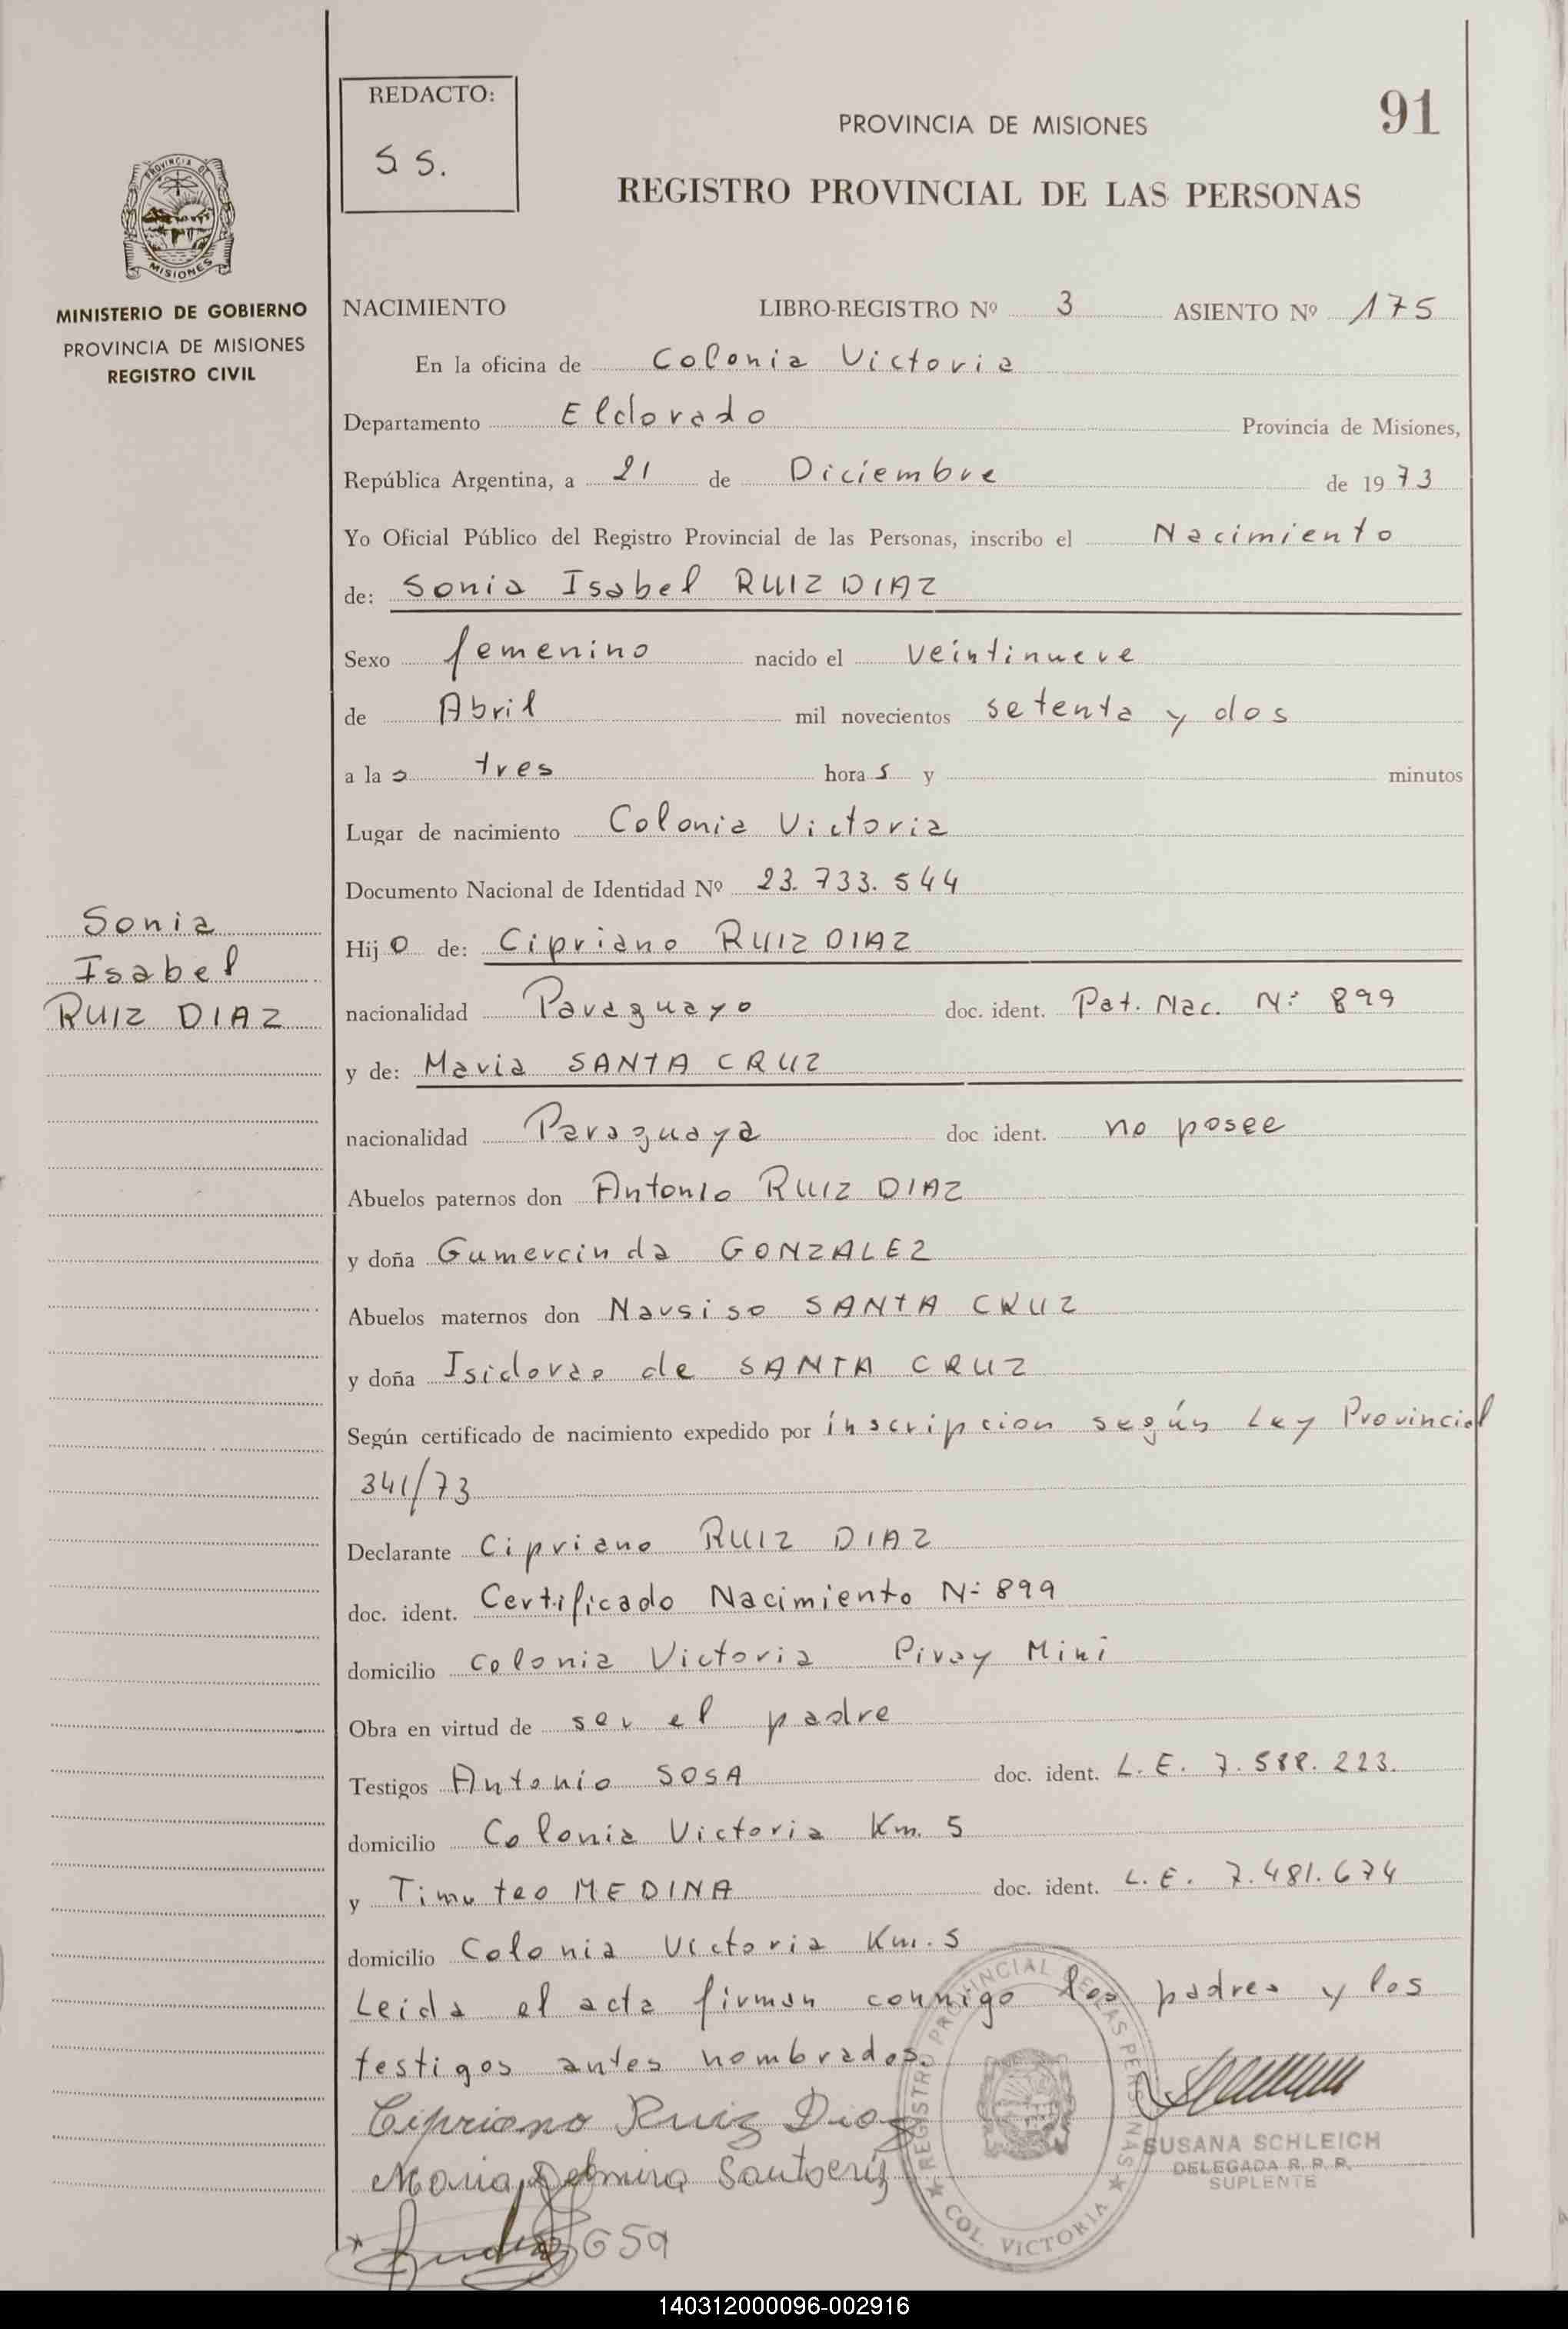 REDACTO:
S S.
PROVINCIA DE MISIONES
91
REGISTRO PROVINCIAL DE LAS PERSONAS
PROVINCIA DE
MISIONES
MINISTERIO DE GOBIERNO
PROVINCIA DE MISIONES
REGISTRO CIVIL
NACIMIENTO LIBRO-REGISTRO Nº 3 ASIENTO Nº 175
En la oficina de Colonia Victoria
Departamento Eldorado Provincia de Misiones,
República Argentina, a 21 de Diciembre de 1973
Yo Oficial Público del Registro Provincial de las Personas, inscribo el Nacimiento
de: Sonia Isabel RUIZ DIAZ
Sexo femenino nacido el veintinueve
de Abril mil novecientos setenta y dos
a las tres horas y minutos
Lugar de nacimiento Colonia Victoria
Documento Nacional de Identidad Nº 23.733.544
Sonia
Isabel
RUIZ DIAZ
Hijo de: Cipriano RUIZ DIAZ
nacionalidad Paraguayo doc. ident. Pat. Nac. Nº 899
y de: Maria SANTA CRUZ
nacionalidad Paraguaya doc ident. no posee
Abuelos paternos don Antonio RUIZ DIAZ
y doña Gumercinda GONZALEZ
Abuelos maternos don Narsiso SANTA CRUZ
y doña Isidorao de SANTA CRUZ
Según certificado de nacimiento expedido por inscripcion según Ley Provincial
341/73
Declarante Cipriano RUIZ DIAZ
doc. ident. Certificado Nacimiento Nº 899
domicilio Colonia Victoria Piray Mini
Obra en virtud de ser el padre
Testigos Antonio SOSA doc. ident. L.E. 7.588.223.
domicilio Colonia Victoria Km. 5
y Timuteo MEDINA doc. ident. L.E. 7.481.674
domicilio Colonia Victoria Km. 5
Leida el acta firman conmigo los padres y los
testigos antes nombrados.
Cipriano Ruiz Diaz
Maria Delmira Santacruz
REGISTRO PROVINCIAL DE LAS PERSONAS
COL. VICTORIA
SUSANA SCHLEICH
DELEGADA R. P. P.
SUPLENTE
140312000096-002916